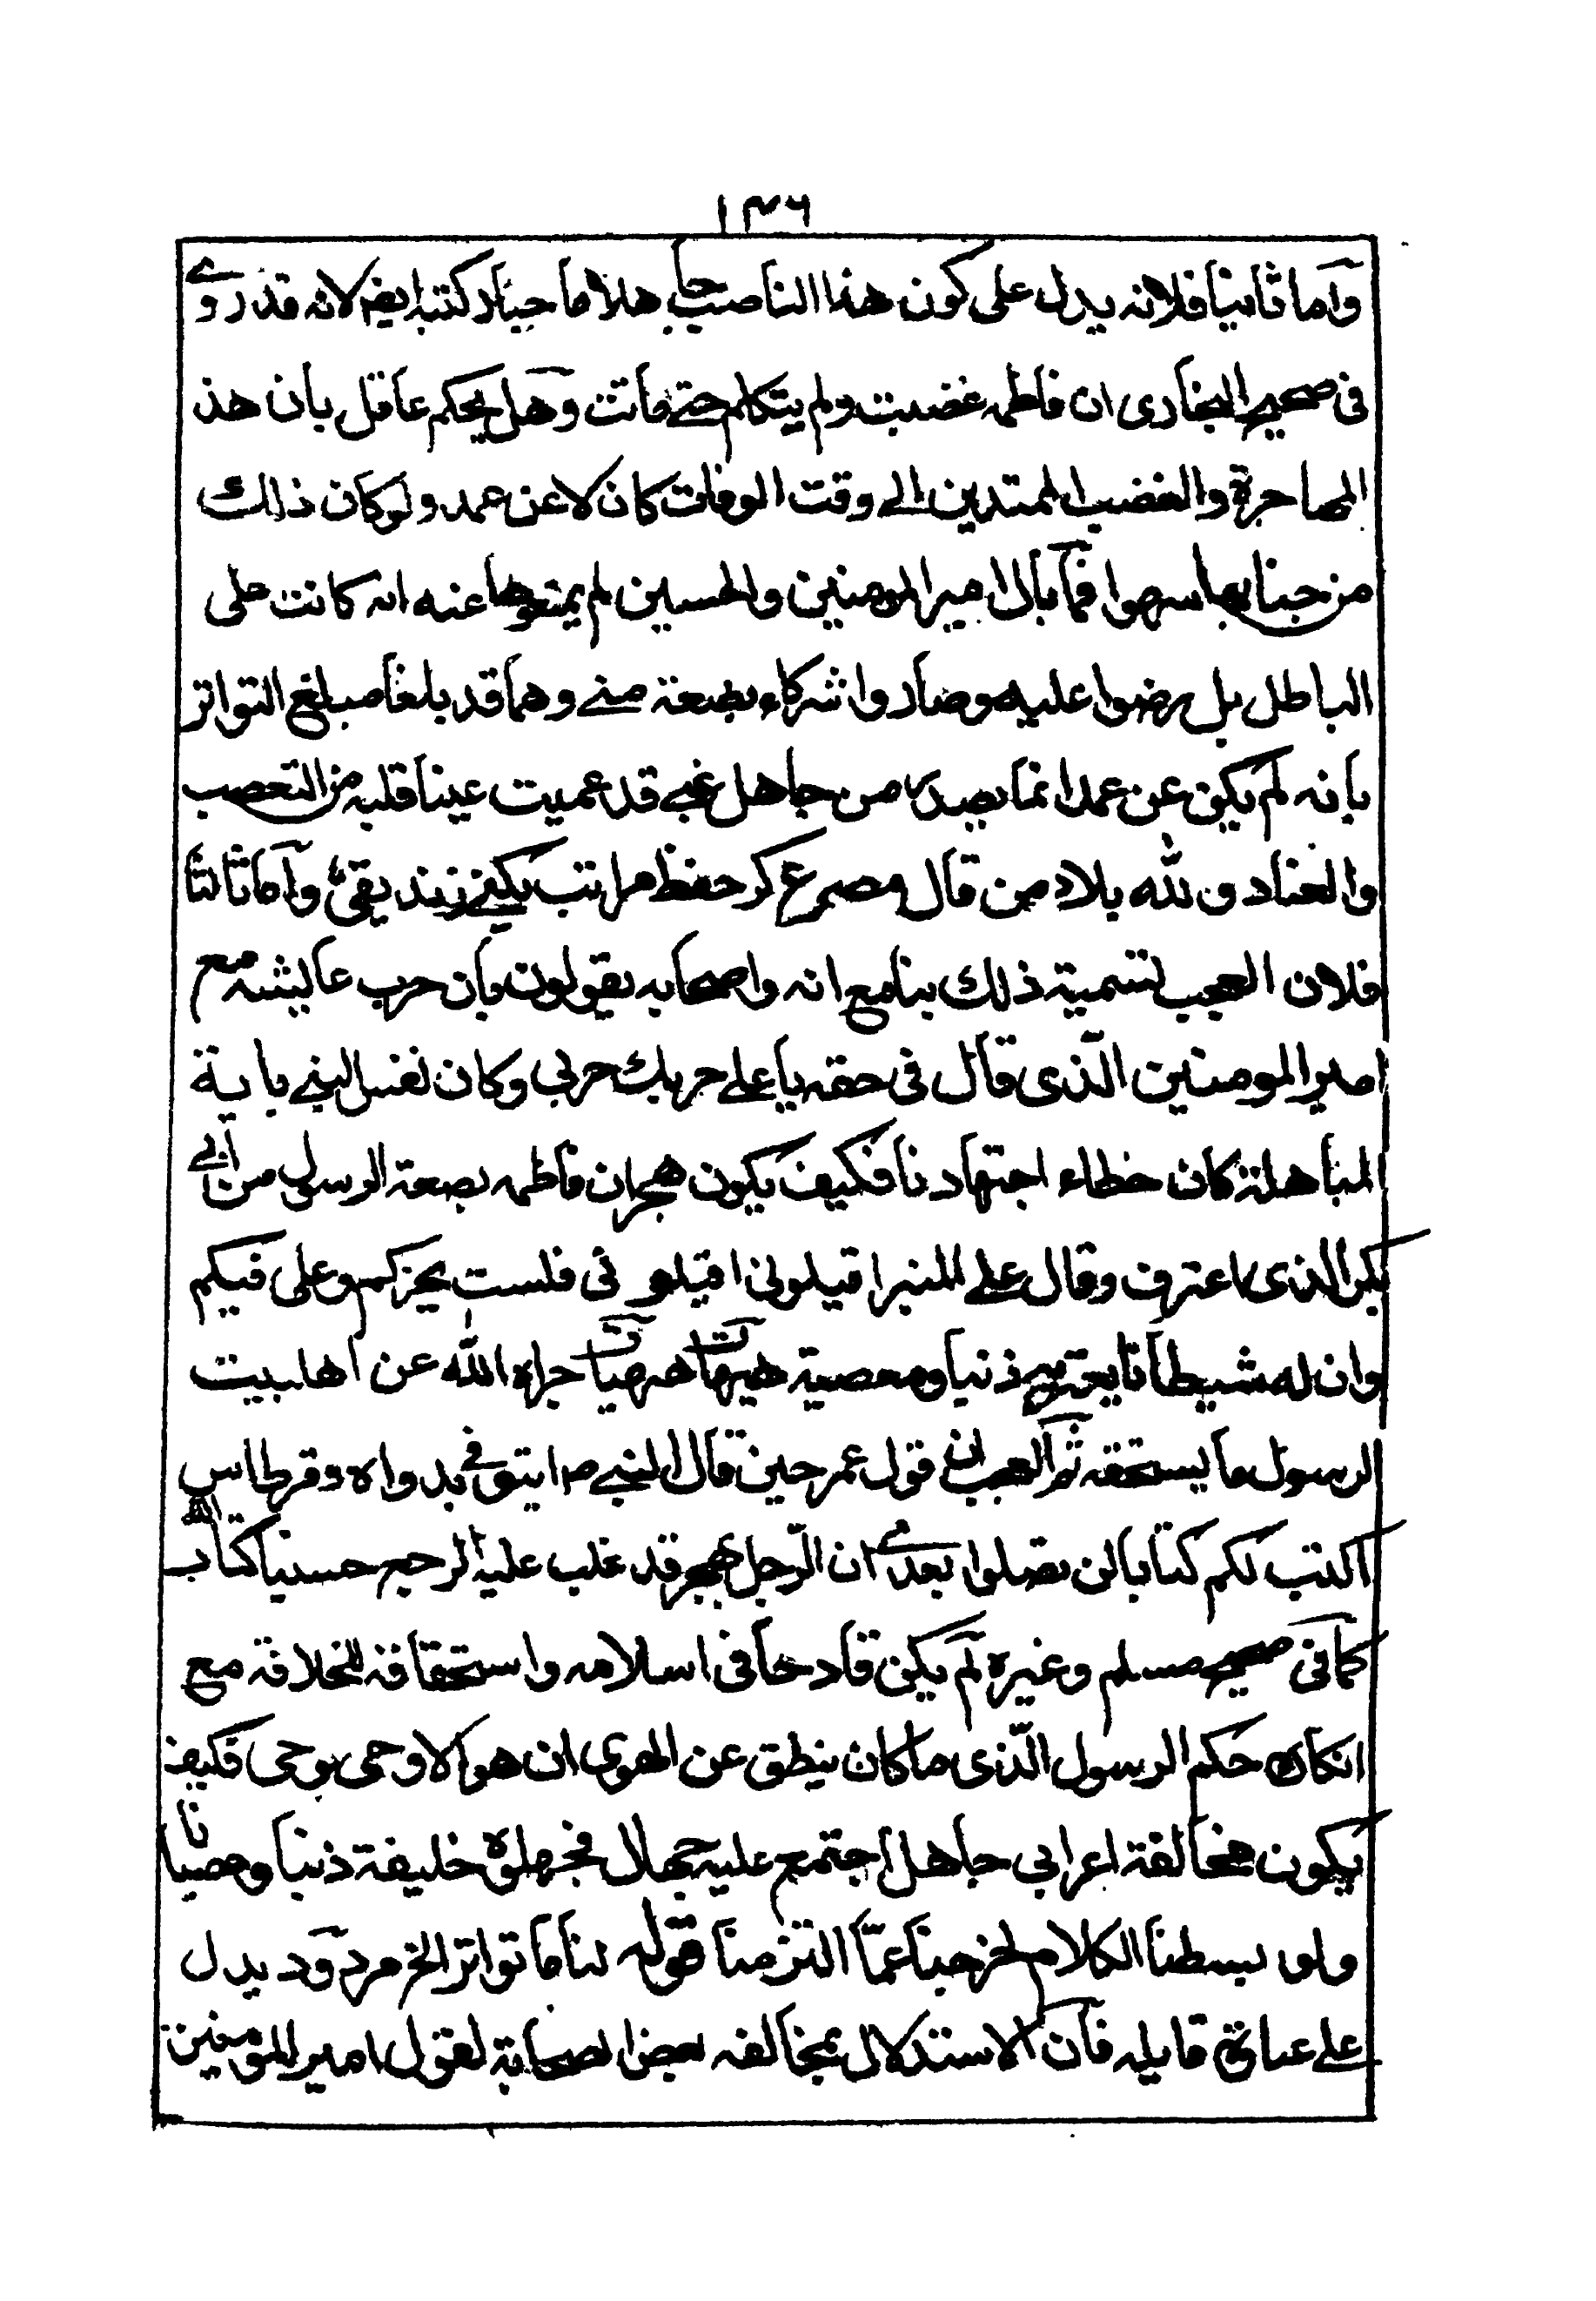 ١٣٦
وأما ثانيا فلانه يدل على كون هذا الناصب جاهلا ما جناد كتبه ايضا لانه قد روى
فى صحيح البخارى ان فاطمه غضبت ولم يتكلم حتى ماتت وهل يحكم عاقل بان هذ
المهاجرة والغضب الممتدين الى وقت الوفات كان لا عن عمد ولو كان ذلك
من جنابها سهوا فما بال امير المومنين والحسين لم يمنعوها عنه انه كانت على
الباطل بل رضوا عليه وصاروا شركاء بضعة منى وهما قد بلغا مبلغ التواتر
بانه لم يكن عن عمد انما يصدر من جاهل غبى قد عميت عينا قلبه من التعصب
والعناد و لله بلاد من قال مصرع كر حفظ مراتب نكنى زنديقى وأما ثالثا
فلان العجب لتسمية ذلك بنا مع انه واصحابه يقولون بان حرب عايشه مع
امير المومنين الّذى قال فى حقه يا على حربك حربى وكان نفس النبى باية
المباهلة كان خطاء اجتهادنا فكيف يكون هجران فاطمه بضعة الرسول من أبى
بكر الذى اعترف وقال على المنبر اقيلونى اقيلونى فلست بخيركم وعلى فيكم
وان له شيطانا يعتريه ذنبا ومعصية هيهات هيهات جزاه الله عن اهلبيت
الرسول ما يستحقه ثم العجب ان قول عمر حين قال النبى ص ايتونى بدواه وقرطاس
اكتب لكم كتابا لن تضلوا بعدى ان الرّجل ليهجر قد غلب عليه الوجع حسبنا كتاب الله
كما فى صحيح مسلم وغيره لم يكن قادحا فى اسلامه واستحقاقه للخلافة مع
انكاره حكم الرسول الّذى ما كان ينطق عن الهوى ان هو الا وحى يوحى فكيف
يكون مخالفة اعرابى جاهل اجتمع عليه جهلال فجعلوه خليفة ذنبا وعصيانا
ولو بسطنا الكلام لخرجنا عمّا التزمنا قوله لنا ما تواتر الخ مردود يدل
على عباوة قايله فان الاستدلال بمخالفه بعض الصحابة لقول امير المومنين